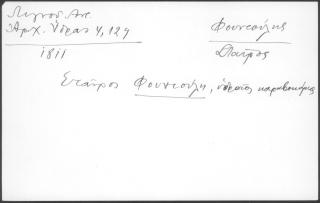 Λιγνοῦ Ἀντ.
Ἀρχ. Ὕδρας 4, 129
1811
Φουντούλης
Σταῦρος
Σταῦρος Φουντούλη, ὑδραῖος καραβοκύρης